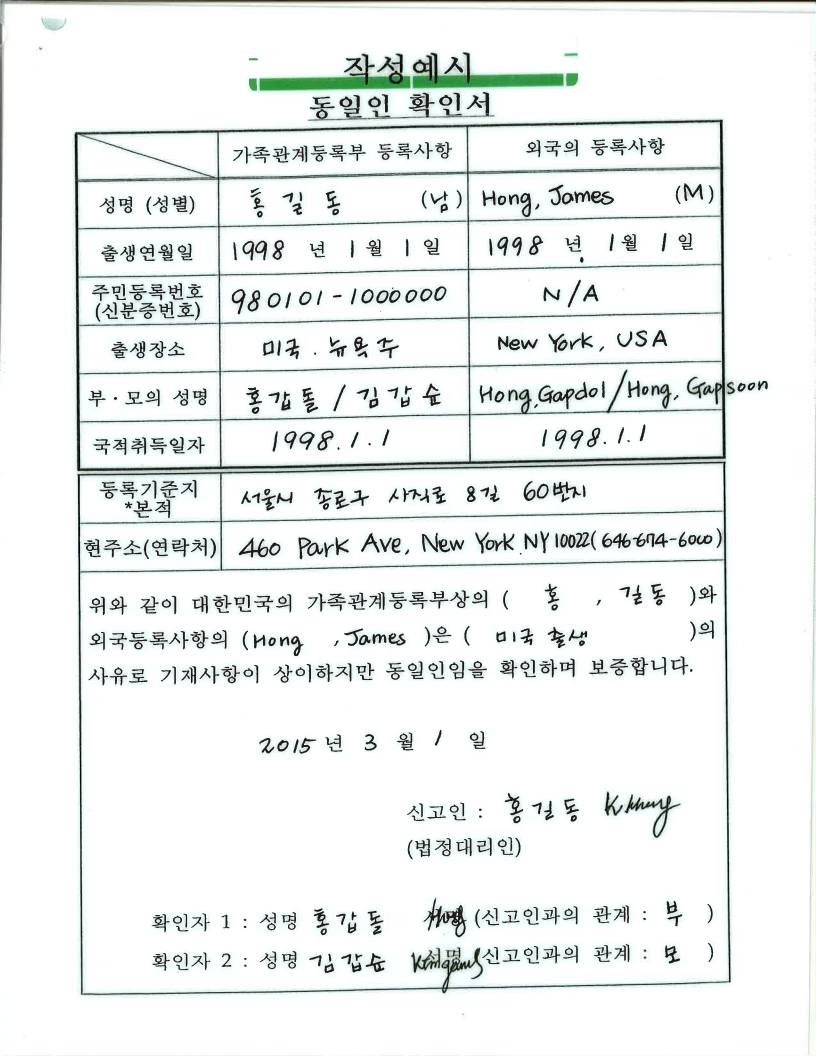 작성예시
동일인 확인서
가족관계등록부 등록사항 외국의 등록사항
성명 (성별) 홍길동 (남) Hong, James (M)
출생연월일 1998 년 1 월 1 일 1998 년 1 월 1 일
주민등록번호
(신분증번호) 980101-1000000 N/A
출생장소 미국. 뉴욕주 New York, USA
부·모의 성명 홍갑돌 / 김갑순 Hong, Gapdol / Hong, Gapsoon
국적취득일자 1998.1.1 1998.1.1
등록기준지
*본적 서울시 종로구 사직로 8길 60번지
현주소(연락처) 460 Park Ave, New York NY 10022 (646-674-6000)
위와 같이 대한민국의 가족관계등록부상의 ( 홍 , 길동 )와
외국등록사항의 (Hong , James )은 ( 미국 출생 )의
사유로 기재사항이 상이하지만 동일인임을 확인하며 보증합니다.
2015 년 3 월 1 일
신고인 : 홍길동
(법정대리인)
확인자 1 : 성명 홍갑돌 (신고인과의 관계 : 부 )
확인자 2 : 성명 김갑순 (신고인과의 관계 : 모 )